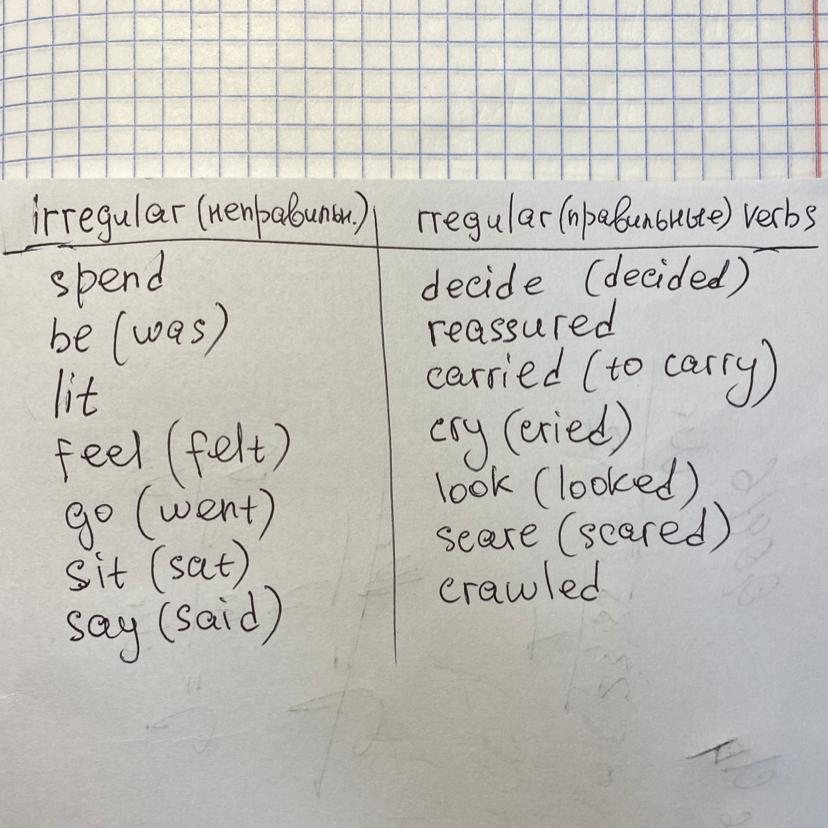 irregular (неправильн.) rregular (правильные) verbs
spend
be (was)
lit
feel (felt)
go (went)
sit (sat)
say (said)
decide (decided)
reassured
carried (to carry)
cry (cried)
look (looked)
scare (scared)
crawled